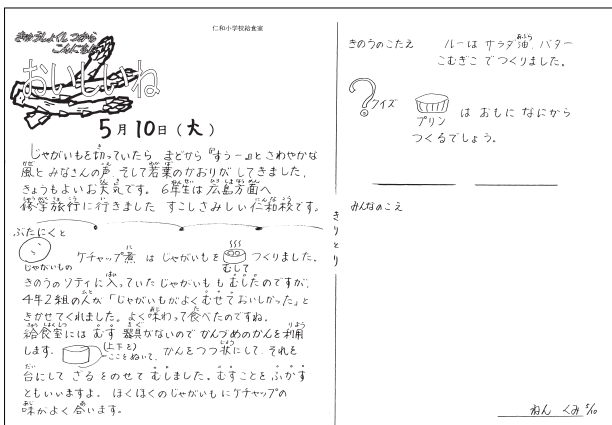 仁和小学校給食室
きゅうしょくしつから
こんにちは
おいしいね
5月10日(火)
じゃがいもを切っていたら まどから『すうー』とさわやかな
風とみなさんの声、そして若葉のかおりがしてきました。
きょうもよいお天気です。6年生は広島方面へ
修学旅行に行きました すこしさみしい仁和校です。
ぶたにくと
じゃがいもの
ケチャップ煮 は じゃがいもを むして つくりました。
きのうのソティに入っていたじゃがいももむしたのですが、
4年2組の人が「じゃがいもがよくむせておいしかった」と
きかせてくれました。よく味わって食べたのですね。
給食室には むす 器具がないのでかんづめのかんを利用
します。(上下を)ここをぬいて、かんをつつ状にして、それを
台にして ざるをのせて むしました。むすことを ふかす
ともいいますよ。ほくほくのじゃがいもにケチャップの
味がよく合います。
きりとり
きのうのこたえ ルーは サラダ油、バター
こむぎこ でつくりました。
?クイズ プリン は おもに なにから
つくるでしょう。
みんなのこえ
ねん くみ 5/10